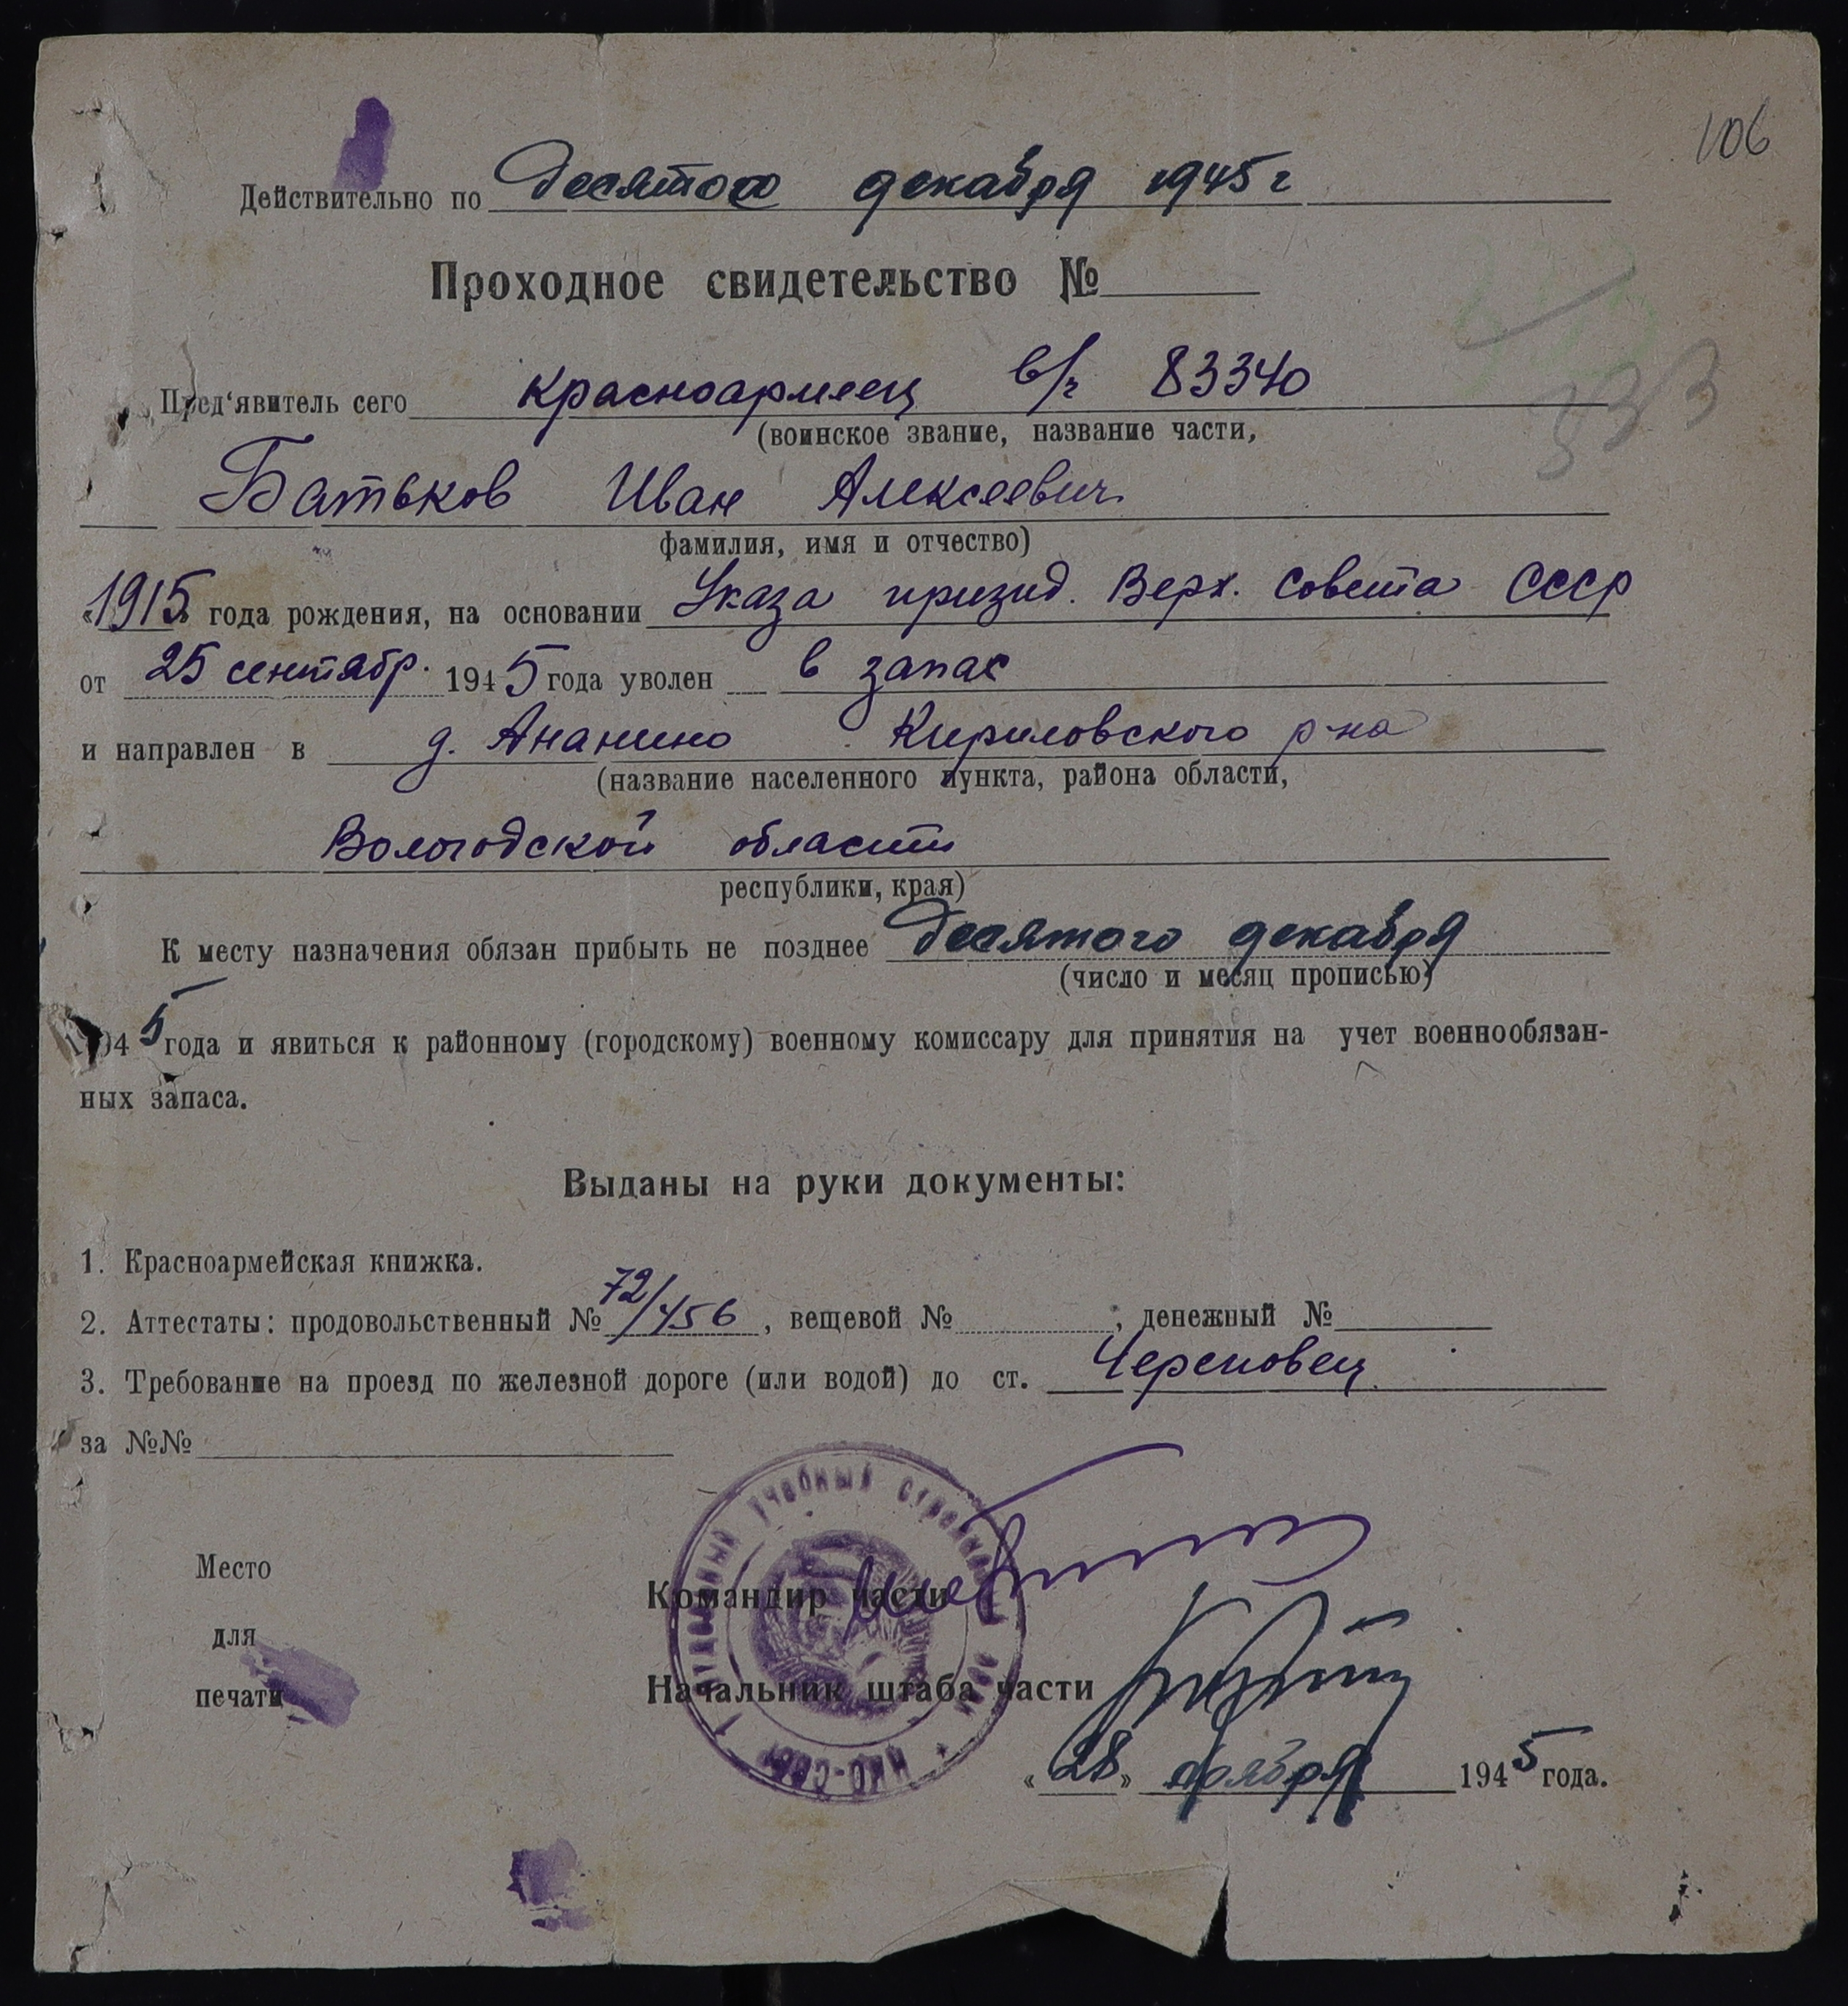 106
Действительно по десятое декабря 1945 г
Проходное свидетельство №
333
Пред'явитель сего красноармеец в/ч 83340
(воинское звание, название части,
Батьков Иван Алексеевич
фамилия, имя и отчество)
«1915» года рождения, на основании Указа призид. Верх. Совета СССР
от 25 сентябр. 1945 года уволен в запас
и направлен в д. Ананино Кириловского р-на
(название населенного пункта, района области,
Вологодской области
республики, края)
К месту назначения обязан прибыть не позднее десятого декабря
(число и месяц прописью)
1945 года и явиться к районному (городскому) военному комиссару для принятия на учет военнообязан-
ных запаса.
Выданы на руки документы:
1. Красноармейская книжка.
2. Аттестаты: продовольственный № 72/456, вещевой № ; денежный №
3. Требование на проезд по железной дороге (или водой) до ст. Череповец
за №№
учебный
НКО-СССР
Место
для
печати
Командир части
Начальник штаба части
«28» ноября 1945 года.